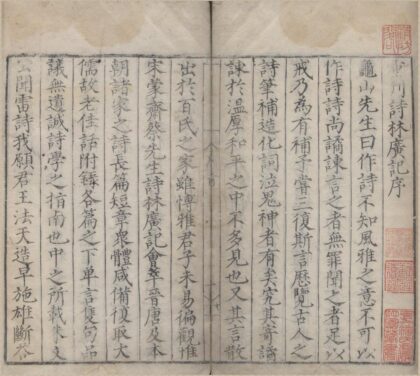 刊詩林廣記序
龜山先生曰作詩不知風雅之意不可以
作詩詩尚譎諫言之者無罪聞之者足以
戒乃為有補予嘗三復斯言歷覽古人之
詩筆補造化詞泣鬼神者有矣究其寄諷
諫於溫厚和平之中不多見也又其言散
出於百氏之家雖博雅君子未易徧觀惟
宋蒙齋蔡先生詩林廣記會萃晉唐及本
朝諸家之詩長篇短章衆體咸備復取大
儒故老佳話附錄各篇之下單言隻句品
議無遺誠詩學之指南也中之所載朱文
公聞雷詩我願君王法天造早施雄斷答